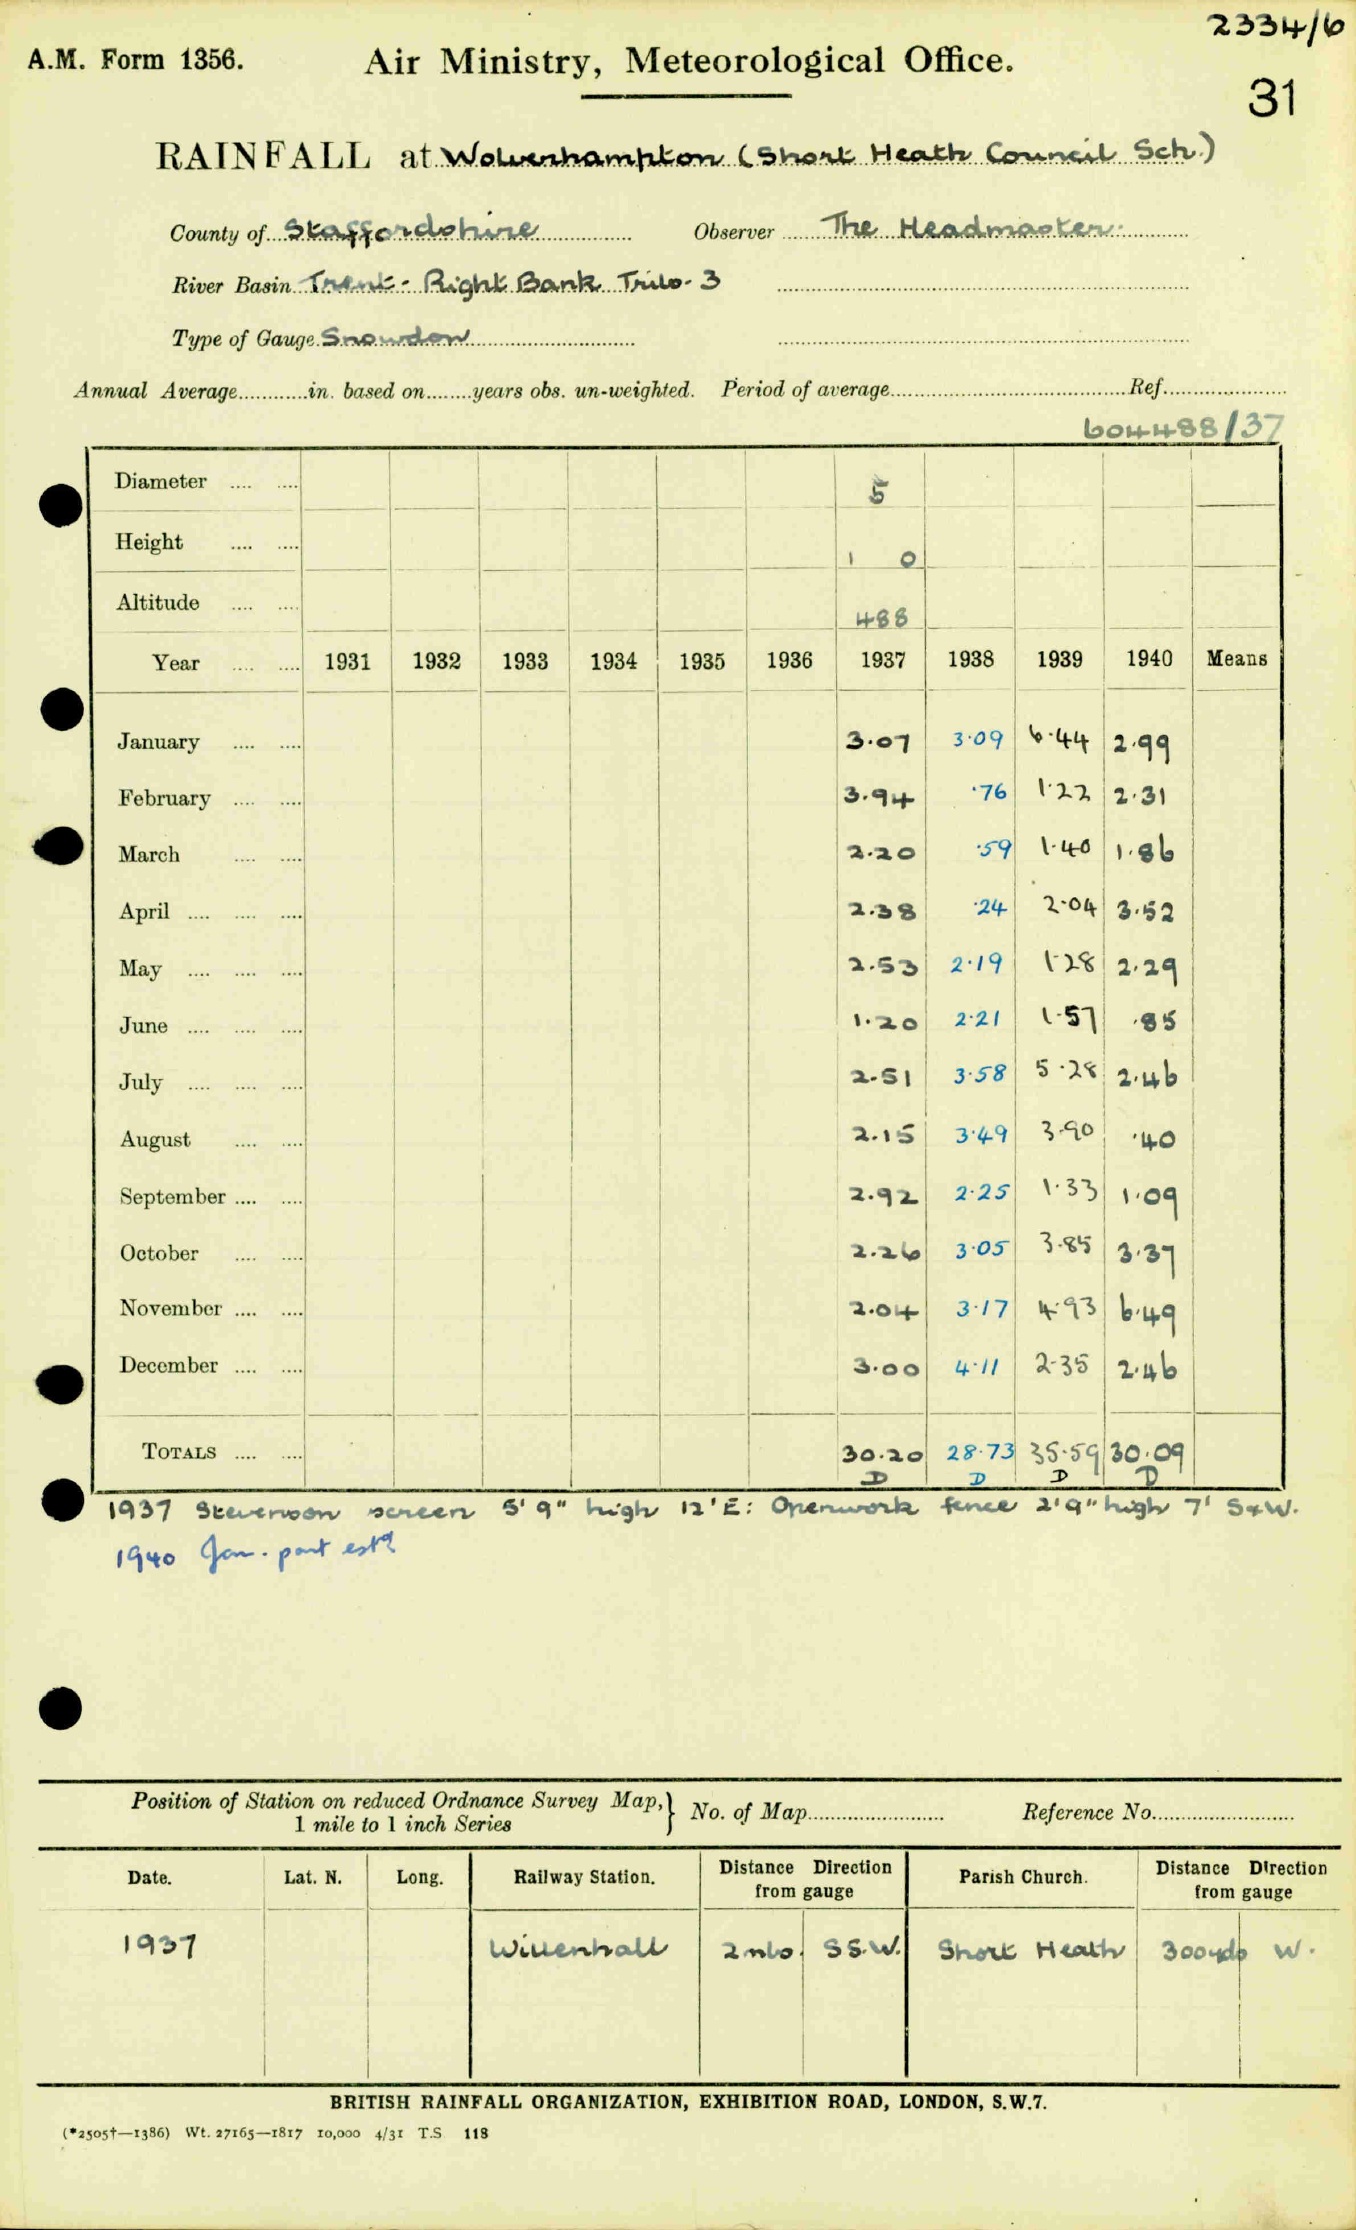 2334/6
A.M. Form 1356. Air Ministry, Meteorological Office.
31
RAINFALL at Wolverhampton (Short Heath Council Sch.)
County of Staffordshire Observer The Headmaster.
River Basin Trent - Right Bank Tribs. 3
Type of Gauge Snowdon
Annual Average............in. based on........years obs. un-weighted. Period of average............Ref............
604488/37
Diameter .... .... 5
Height .... .... 1 0
Altitude .... .... 488
Year .... .... 1931 1932 1933 1934 1935 1936 1937 1938 1939 1940 Means
January .... .... 3.07 3.09 6.44 2.99
February .... .... 3.94 .76 1.22 2.31
March .... .... 2.20 .59 1.40 1.86
April .... .... .... 2.38 .24 2.04 3.52
May .... .... .... 2.53 2.19 1.28 2.29
June .... .... .... 1.20 2.21 1.57 .85
July .... .... .... 2.51 3.58 5.28 2.46
August .... .... 2.15 3.49 3.90 .40
September .... .... 2.92 2.25 1.33 1.09
October .... .... 2.26 3.05 3.85 3.37
November .... .... 2.04 3.17 4.93 6.49
December .... .... 3.00 4.11 2.35 2.46
TOTALS .... .... 30.20 28.73 35.59 30.09
D D D D
1937 Stevenson screen 5' 9" high 12' E: Openwork fence 2' 9" high 7' S & W.
1940 Jan. part estd
Position of Station on reduced Ordnance Survey Map, } No. of Map............ Reference No............
1 mile to 1 inch Series
Date. Lat. N. Long. Railway Station. Distance Direction from gauge Parish Church. Distance Direction from gauge
1937 Willenhall 2 mls. S S.W. Short Heath 300 yds W.
BRITISH RAINFALL ORGANIZATION, EXHIBITION ROAD, LONDON, S.W.7.
(*2505†—1386) Wt. 27165—1817 10,000 4/31 T.S. 118